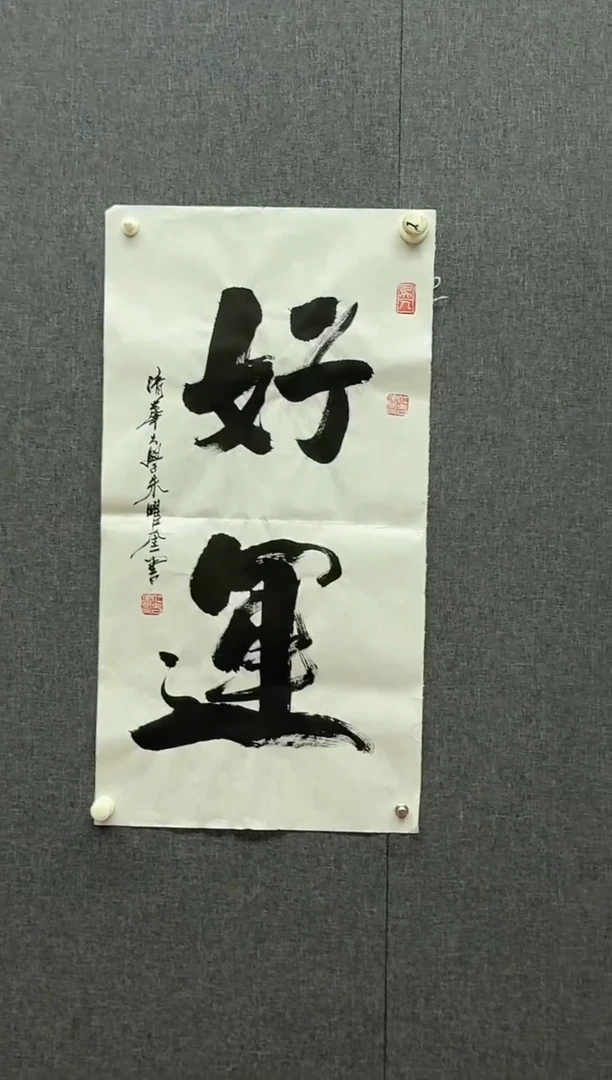 好運
清華大學朱曜奎書